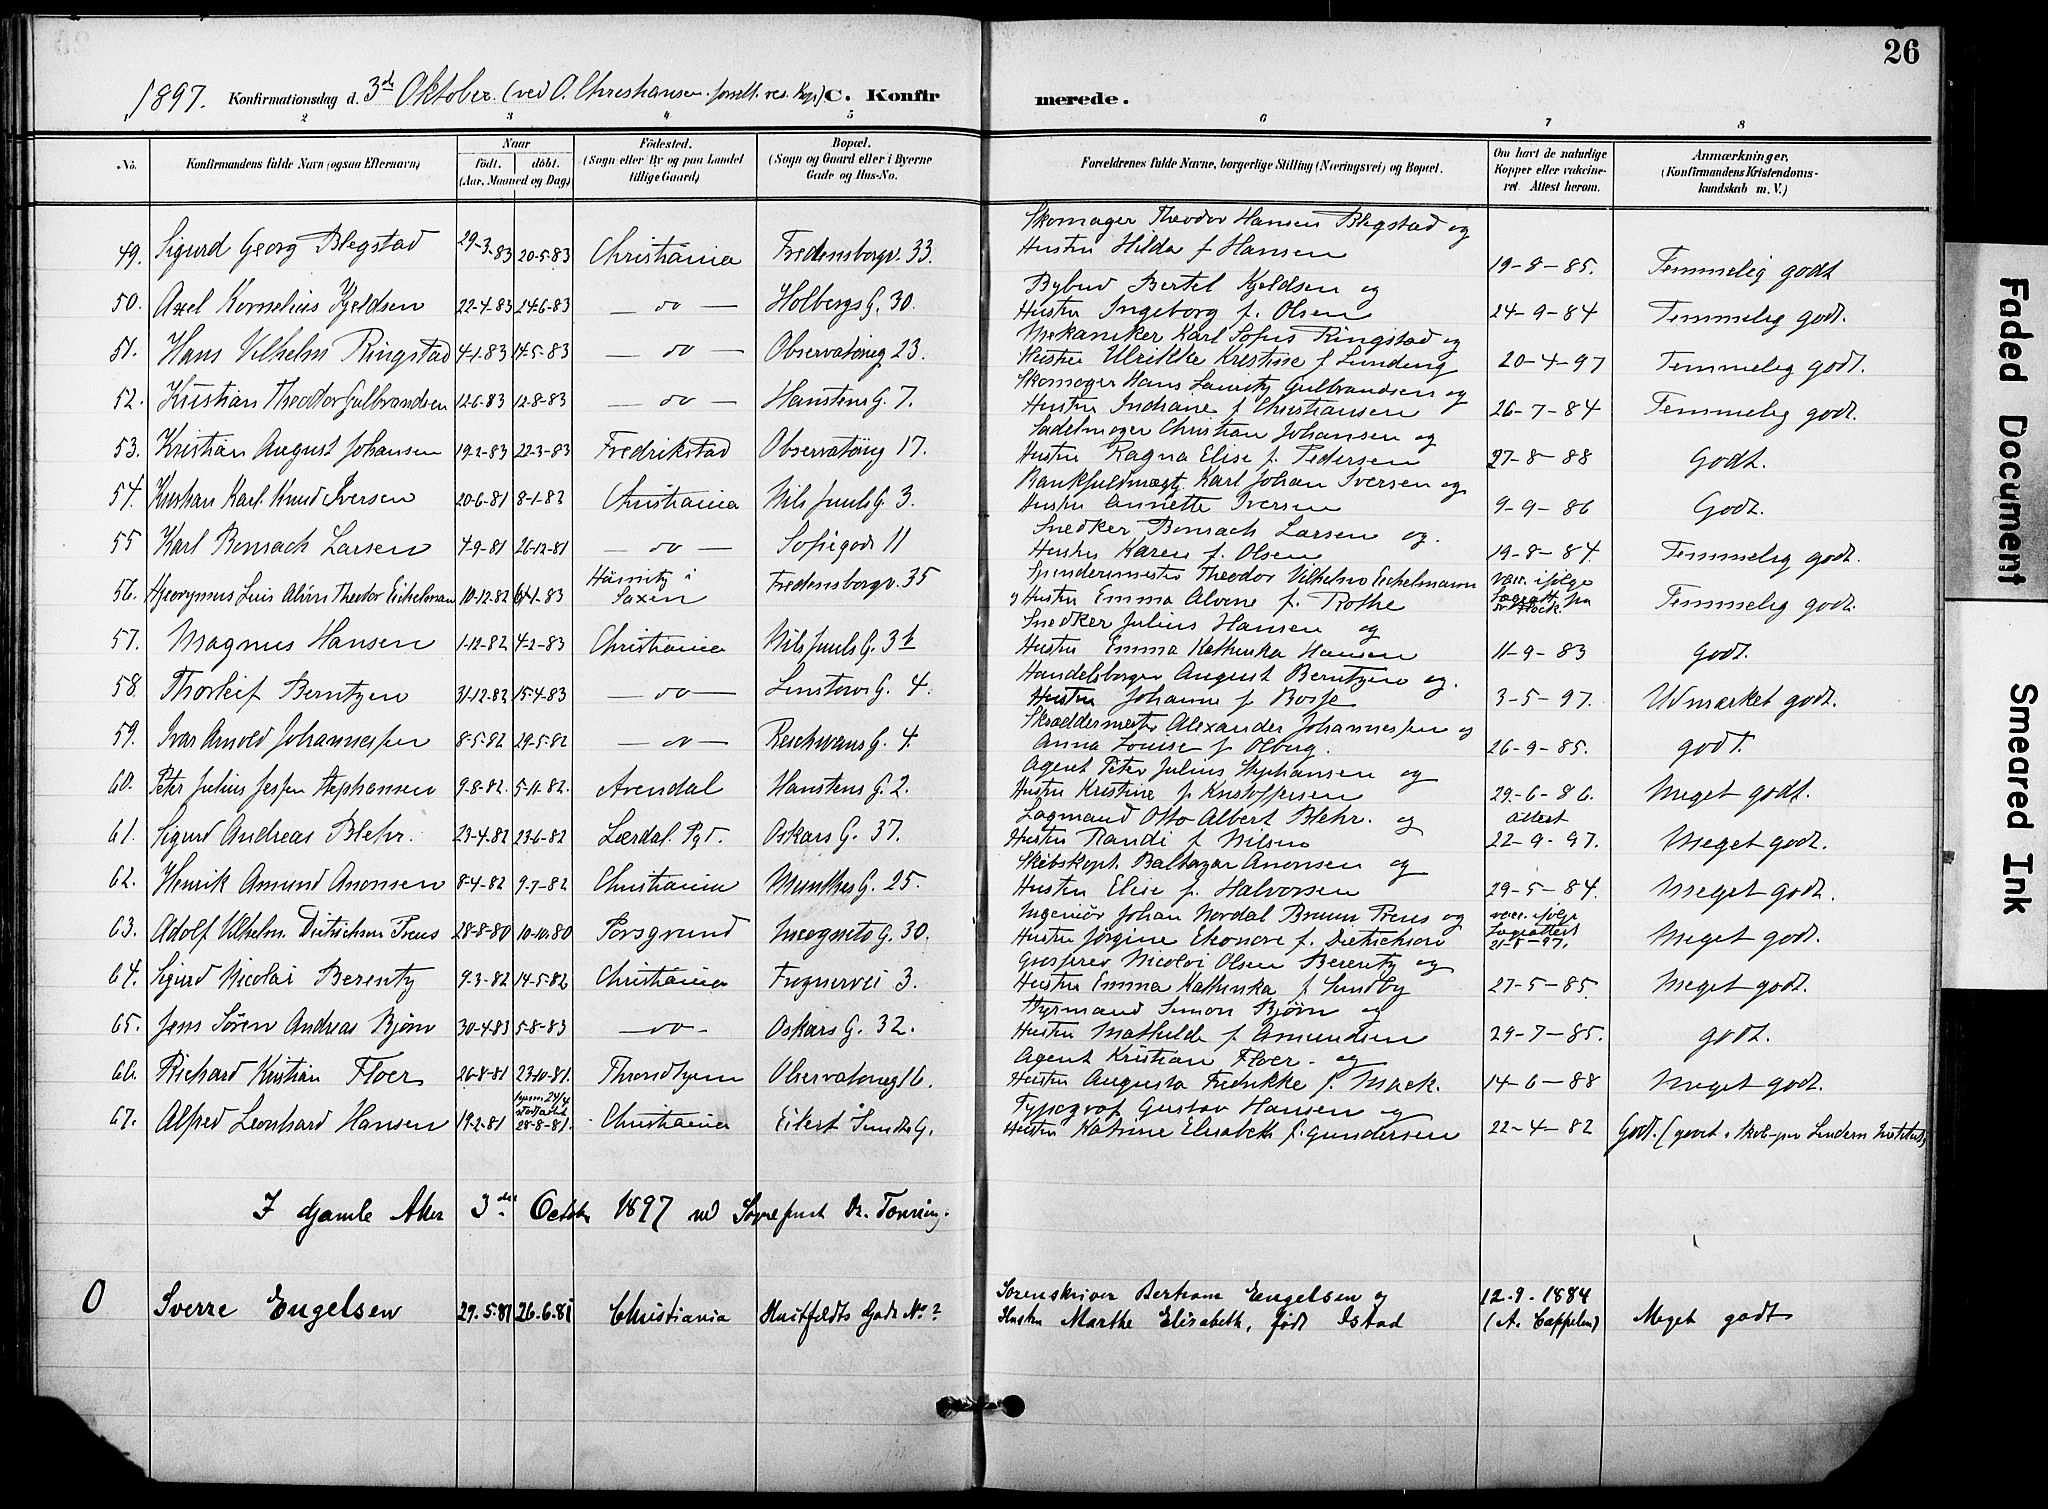 26
1897. Konfirmationsdag d. 3die Oktober (ved O. Christiansen. res. Kap) C. Konfirmerede.
1 2 3 4 5 6 7 8
No. Konfirmandens fulde Navn (ogsaa Efternavn) Naar født. døbt. (Aar, Maaned og Dag) Fødested. (Sogn eller By og paa Landet tillige Gaard) Bopæl. (Sogn og Gaard eller i Byerne Gade og Hus-No. Forældrenes fulde Navne, borgerlige Stilling (Næringsvei) og Bopæl. Om havt de naturlige Kopper eller vakcineret. Attest herom. Anmærkninger. (Konfirmandens Kristendomskundskab m. V.)
Skomager Theodor Hansen Blegstad og
49. Sigurd Georg Blegstad 29-3-83 20-5-83 Christiania Fredensborgv. 33. Hustru Hilda f Hansen 19-8-85. Temmelig godt
Bybud Bertel Kjeldsen og
50. Axel Kornelius Kjeldsen 22-4-83 24-6-83 — do — Holbergs G. 30. Hustru Ingeborg f. Olsen 24-9-84 Temmelig godt.
Mekaniker Karl Sofus Ringstad og
51. Hans Vilhelm Ringstad 4-1-83 14-5-83 — do — Observatorieg 23. Hustru Ulrikke Kristine f Lunding 20-4-97 Temmelig godt.
Skomager Hans Lauritz Gulbrandsen og
52. Kristian Theodor Gulbrandsen 12-6-83 12-8-83 — do — Hanstens G. 7. Hustru Indiane f Christiansen 26-7-84 Temmelig godt.
Sadelmager Christian Johansen og
53. Kristian August Johansen 19-2-83 22-3-83 Fredrikstad Observatorieg 17. Hustru Ragna Elise f. Pedersen 27-8-88 Godt.
Bankfuldmægt. Karl Johan Iversen og
54. Kristian Karl Knud Iversen 20-6-81 8-1-82 Christiania Nils Juuls G. 3. Hustru Annette Iversen 9-9-86 Godt.
Snedker Bernsach Larsen og.
55 Karl Bernsach Larsen 4-9-81 26-12-81 — do — Sofiegade 11 Hustru Karen f. Olsen 19-8-84. Temmelig godt.
Spinderimester Theodor Vilhelm Eichelmann vacc. ifølge
56. Hjeronymus Luis Alvin Theodor Eichelman 10-12-82 1-83 i Saxen Fredensborgv. 35 og Hustru Emma Alvine f. Rothe Lægeatt. fra Temmelig godt.
Snedker Julius Hansen og
57. Magnus Hansen 1-12-82 4-2-83 Christiania Nils Juuls G. 3b Hustru Emma Kathinka Hansen 11-9-83 godt.
Handelsborger August Berntzen og.
58. Thorleif Berntzen 31-12-82 15-4-83 — do — Linstows G. 4. Hustru Johanne f Bosse 3-5-97. Udmærket godt.
Skræddermester Alexander Johannessen og
59. Ivar Arnold Johannessen 8-5-82 29-5-82 — do — Reichwans G. 4. Anna Louise f. Olberg. 26-9-85. godt.
Agent Peter Julius Stephansen og
60. Peter Julius Jesper Stephansen 9-8-82. 5-11-82. Arendal Hanstens G. 2. Hustru Kristine f Kristoffersen 29-6-86. Meget godt.
Lagmand Otto Albert Blehr. og attest
61. Sigurd Andreas Blehr. 23-4-82 23-6-82 Lærdal. Pgd. Oskars G. 37. Hustru Randi f Nilsen 22-9-97. Meget godt.
Skibskapt. Baltazar Anonsen og
62. Henrik Amund Anonsen 8-4-82 9-7-82 Christiania Munthes G. 25. Hustru Elise f. Halvorsen 29-5-84. Meget godt.
Ingeniør Johan Nordal Bruun Preus og vacc. ifølge
63. Adolf Vilhelm Dietrichsen Preus 28-8-80 10-10-80 Porsgrund Incognito G. 30. Hustru Jørgine Elenore f. Dietrichson Lægeattest 21-8-97. Meget godt.
Nicolai Olsen Berentz og
64. Sigurd Nicolai Berentz 9-3-82 14-5-82 Christiania Frognervei 3. Hustru Emma Kathinka f Sundby 27-5-85. Meget godt.
Styrmand Simon Bjørn og
65. Jens Søren Andreas Bjørn 30-4-83 5-8-83 — do - Oskars G. 32. Hustru Mathilde f Amundsen 29-7-85. godt.
Agent Kristian Floer. og
66. Richard Kristian Floer 26-8-81 23-10-81. Throndhjem Observatorieg 16. Hustru Augusta Fredrikke f. Mack. 14-6-88 Meget godt.
Typograf Gustav Hansen og
67. Alfred Leonhard Hansen 19-2-81 hjem. 24/4 stadfæstet 28-8-81. Christiania Eilert Sundts G. Hustru Katrine Elisabeth f. Gundersen 22-4-82 Godt. (
I Gamle Aker 3die October 1897 ved Sogneprest Dr. Tønning.
Sorenskriver Bertram Engelsen og 12-9-1884
0 Sverre Engelsen 29.5.81 26.6.81 Christiania Huitfeldts Gade No 2 Hustru Marthe Elisabeth, født Istad (A. Cappelen) Meget godt
Faded Document
Smeared Ink